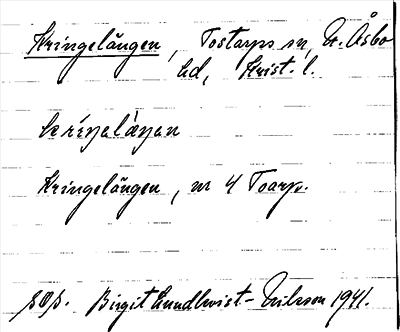 Kringelången, Tostarps sn, N. Åsbo
hd, Krist. l.
Kringelången, nr 4 Toarp.
Birgit Lundkvist-Nilsson 1941.